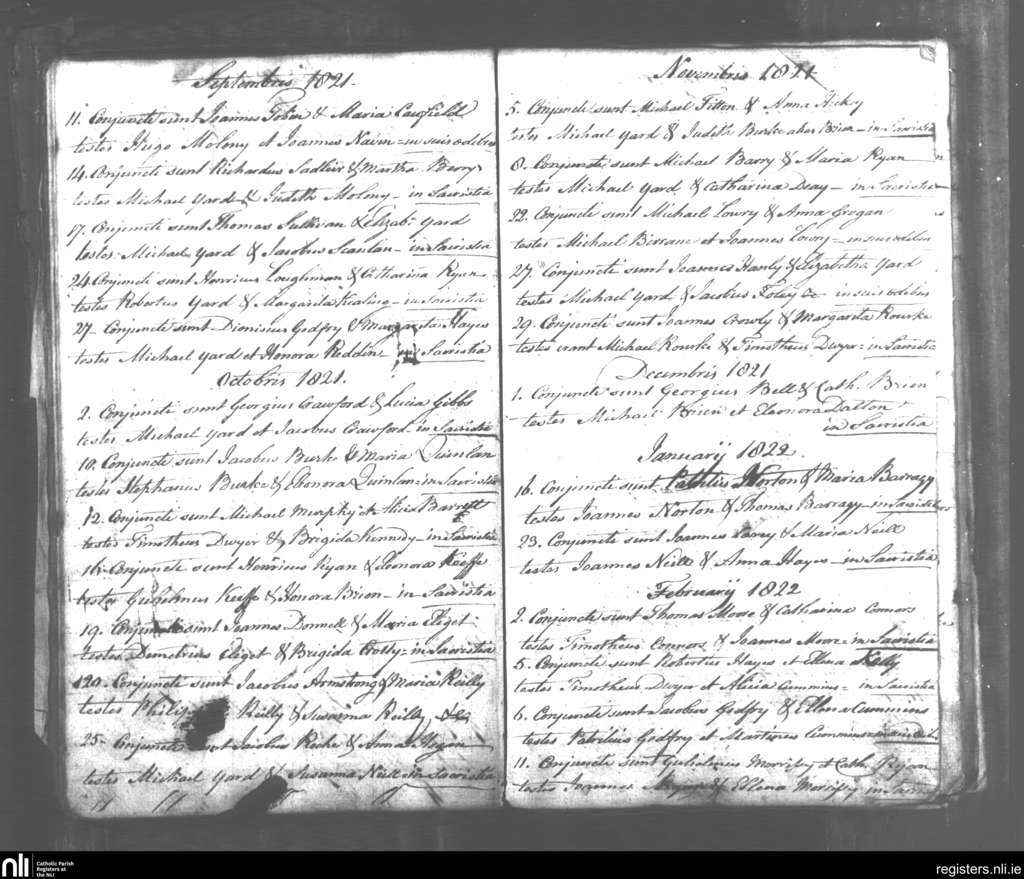 Septembris 1821.
11. Conjuncti sunt Joannes Tobin & Maria Caufield
testes Hugo Molony et Joannes Nairn = in suis ædibus
14. Conjuncti sunt Richardus Sadleir & Martha Berry
testes Michael Yard & Judith Molony - in Sacristia
17. Conjuncti sunt Thomas Sullivan & Elizab: Yard
testes Michael Yard & Jacobus Scanlan - in Sacristia
24. Conjuncti sunt Henricus Loughman & Catharina Ryan
testes Robertus Yard & Margarita Kealing - in Sacristia
27. Conjuncti sunt Dionisius Godfry & Margarita Hayes
testes Michael Yard et Honora Reddin in Sacristia
Octobris 1821.
2. Conjuncti sunt Georgius Crawford & Lucia Gibbs
testes Michael Yard et Jacobus Crawford - in Sacristia
10. Conjuncti sunt Jacobus Burke & Maria Quinlan
testes Stephanus Burke & Elenora Quinlan = in Sacristia
12. Conjuncti sunt Michael Murphy & Alicia Barrett
testes Timotheus Dwyer & Brigida Kennedy - in Sacristia
16. Conjuncti sunt Henricus Ryan & Elenora Keeffe
testes Gulielmus Keeffe & Honora Brien - in Sacristia
19. Conjuncti sunt Joannes Donnell & Maria Cliget
testes Demetrius Cliget & Brigida Crotty = in Sacristia
20. Conjuncti sunt Jacobus Armstrong & Maria Reilly
testes Reilly & Susanna Reilly, &c
25. Conjuncti sunt Jacobus Roche & Anna Hogan
testes Michael Yard & Susanna Neill in Sacristia
Novembris 1821
5. Conjuncti sunt Michael Fitton & Anna Hickey
testes Michael Yard & Judith Burke alias Brien - in Sacristia
8. Conjuncti sunt Michael Barry & Maria Ryan
testes Michael Yard & Catharina Deay - in Sacristia
22. Conjuncti sunt Michael Lowry & Anna Grogan
testes Michael Birrane et Joannes Lowry = in suis ædibus
27. Conjuncti sunt Joannes Hanly & Elizabetha Yard
testes Michael Yard & Jacobus Foley &c in suis ædibus
29. Conjuncti sunt Joannes Crowly & Margarita Rourke
testes erant Michael Rourke & Timotheus Dwyer = in Sacristia
Decembris 1821
1. Conjuncti sunt Georgius Bell & Cath. Brien
testes Michael Brien et Eleonora Dalton
in Sacristia
Januarij 1822.
16. Conjuncti sunt Patritius Norton & Maria Barragy
testes Joannes Norton & Thomas Barragy - in suis ædibus
23. Conjuncti sunt Joannes Carey & Maria Neill
testes Joannes Neill & Anna Hayes - in Sacristia
Februarij 1822
2. Conjuncti sunt Thomas Moore & Catharina Connors
testes Timotheus Connors & Joannes Moore = in Sacristia
5. Conjuncti sunt Robertus Hayes et Ellena Kelly
testes Timotheus Dwyer et Alicia Cummins = in Sacristia
6. Conjuncti sunt Jacobus Godfry & Ellena Cummins
testes Patritius Godfry et Martinus Cummins
11. Conjuncti sunt Gulielmus Morrissy & Cath. Ryan
testes Joannes & Ellena Morrissy in Sacristia
nli Catholic Parish Registers at the NLI
registers.nli.ie